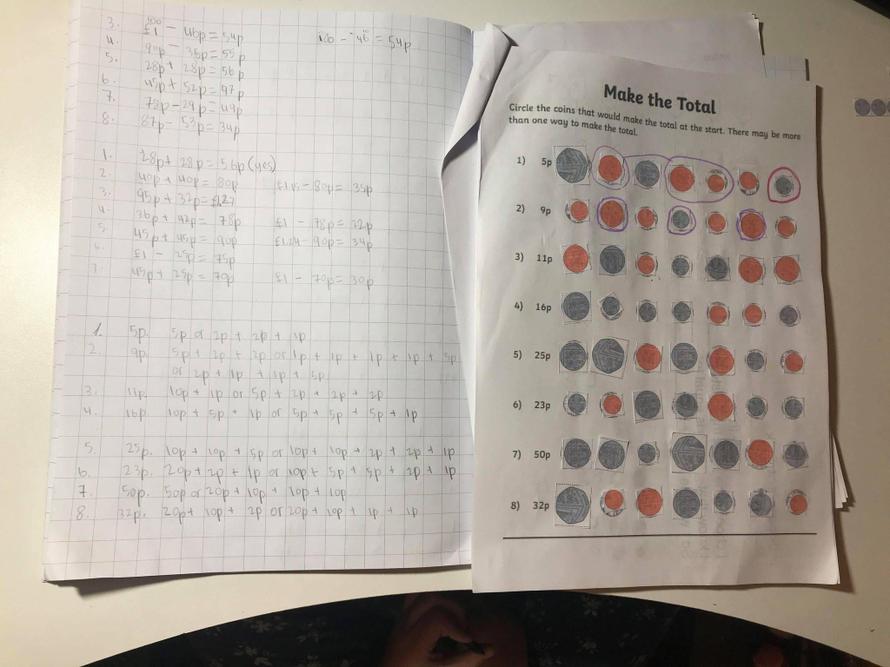 3. £1 100 - 46p = 54p
100 - 46 = 54p
4. 91p - 36p = 55p
5. 28p + 28p = 56p
6. 45p + 52p = 97p
7. 78p - 29p = 49p
8. 87p - 53p = 34p
1. 28p + 28p = 56p (yes)
2. 40p + 40p = 80p £1.15 - 80p = 35p
3. 95p + 32p = £1.27
4. 36p + 42p = 78p £1 - 78p = 22p
5. 45p + 45p = 90p £1.24 - 90p = 34p
6. £1 - 25p = 75p
7. 45p + 25p = 70p £1 - 70p = 30p
1. 5p. 5p or 2p + 2p + 1p
2. 9p. 5p + 2p + 2p or 1p + 1p + 1p + 1p + 5p
or 2p + 1p + 1p + 5p
3. 11p. 10p + 1p or 5p + 2p + 2p + 2p
4. 16p 10p + 5p + 1p or 5p + 5p + 5p + 1p
5. 25p. 10p + 10p + 5p or 10p + 10p + 2p + 2p + 1p
6. 23p. 20p + 2p + 1p or 10p + 5p + 5p + 2p + 1p
7. 50p. 50p or 20p + 10p + 10p + 10p
8. 32p. 20p + 10p + 2p or 20p + 10p + 1p + 1p
Make the Total
Circle the coins that would make the total at the start. There may be more
than one way to make the total.
1) 5p
2) 9p
3) 11p
4) 16p
5) 25p
6) 23p
7) 50p
8) 32p